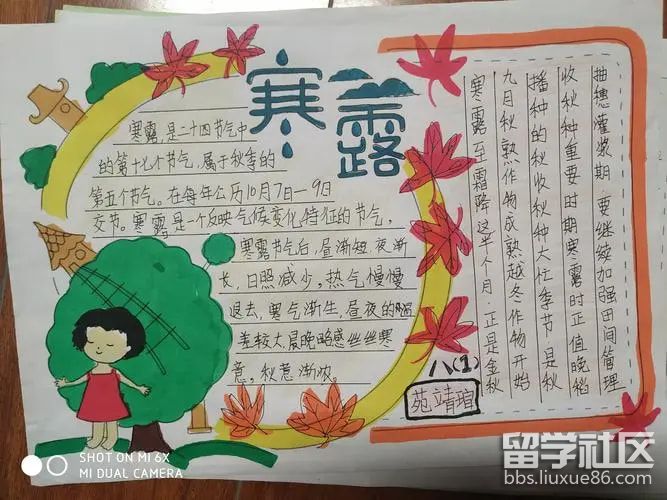 寒露
寒露,是二十四节气中
的第十七个节气,属于秋季的
第五个节气。在每年公历10月7日—9日
交节。寒露是一个反映气候变化特征的节气,
寒露节气后,昼渐短,夜渐
长,日照减少,热气慢慢
退去,寒气渐生,昼夜的温
差较大,晨晚略感丝丝寒
意,秋意渐浓。
寒露至霜降这半个月,正是金秋
九月秋熟作物成熟越冬作物开始
播种的秋收秋种大忙季节是秋
收秋种重要时期寒露时正值晚稻
抽穗灌浆期,要继续加强田间管理
八(1)
苑靖瑄
SHOT ON MI 6X
MI DUAL CAMERA
留学社区
bbs.liuxue86.com